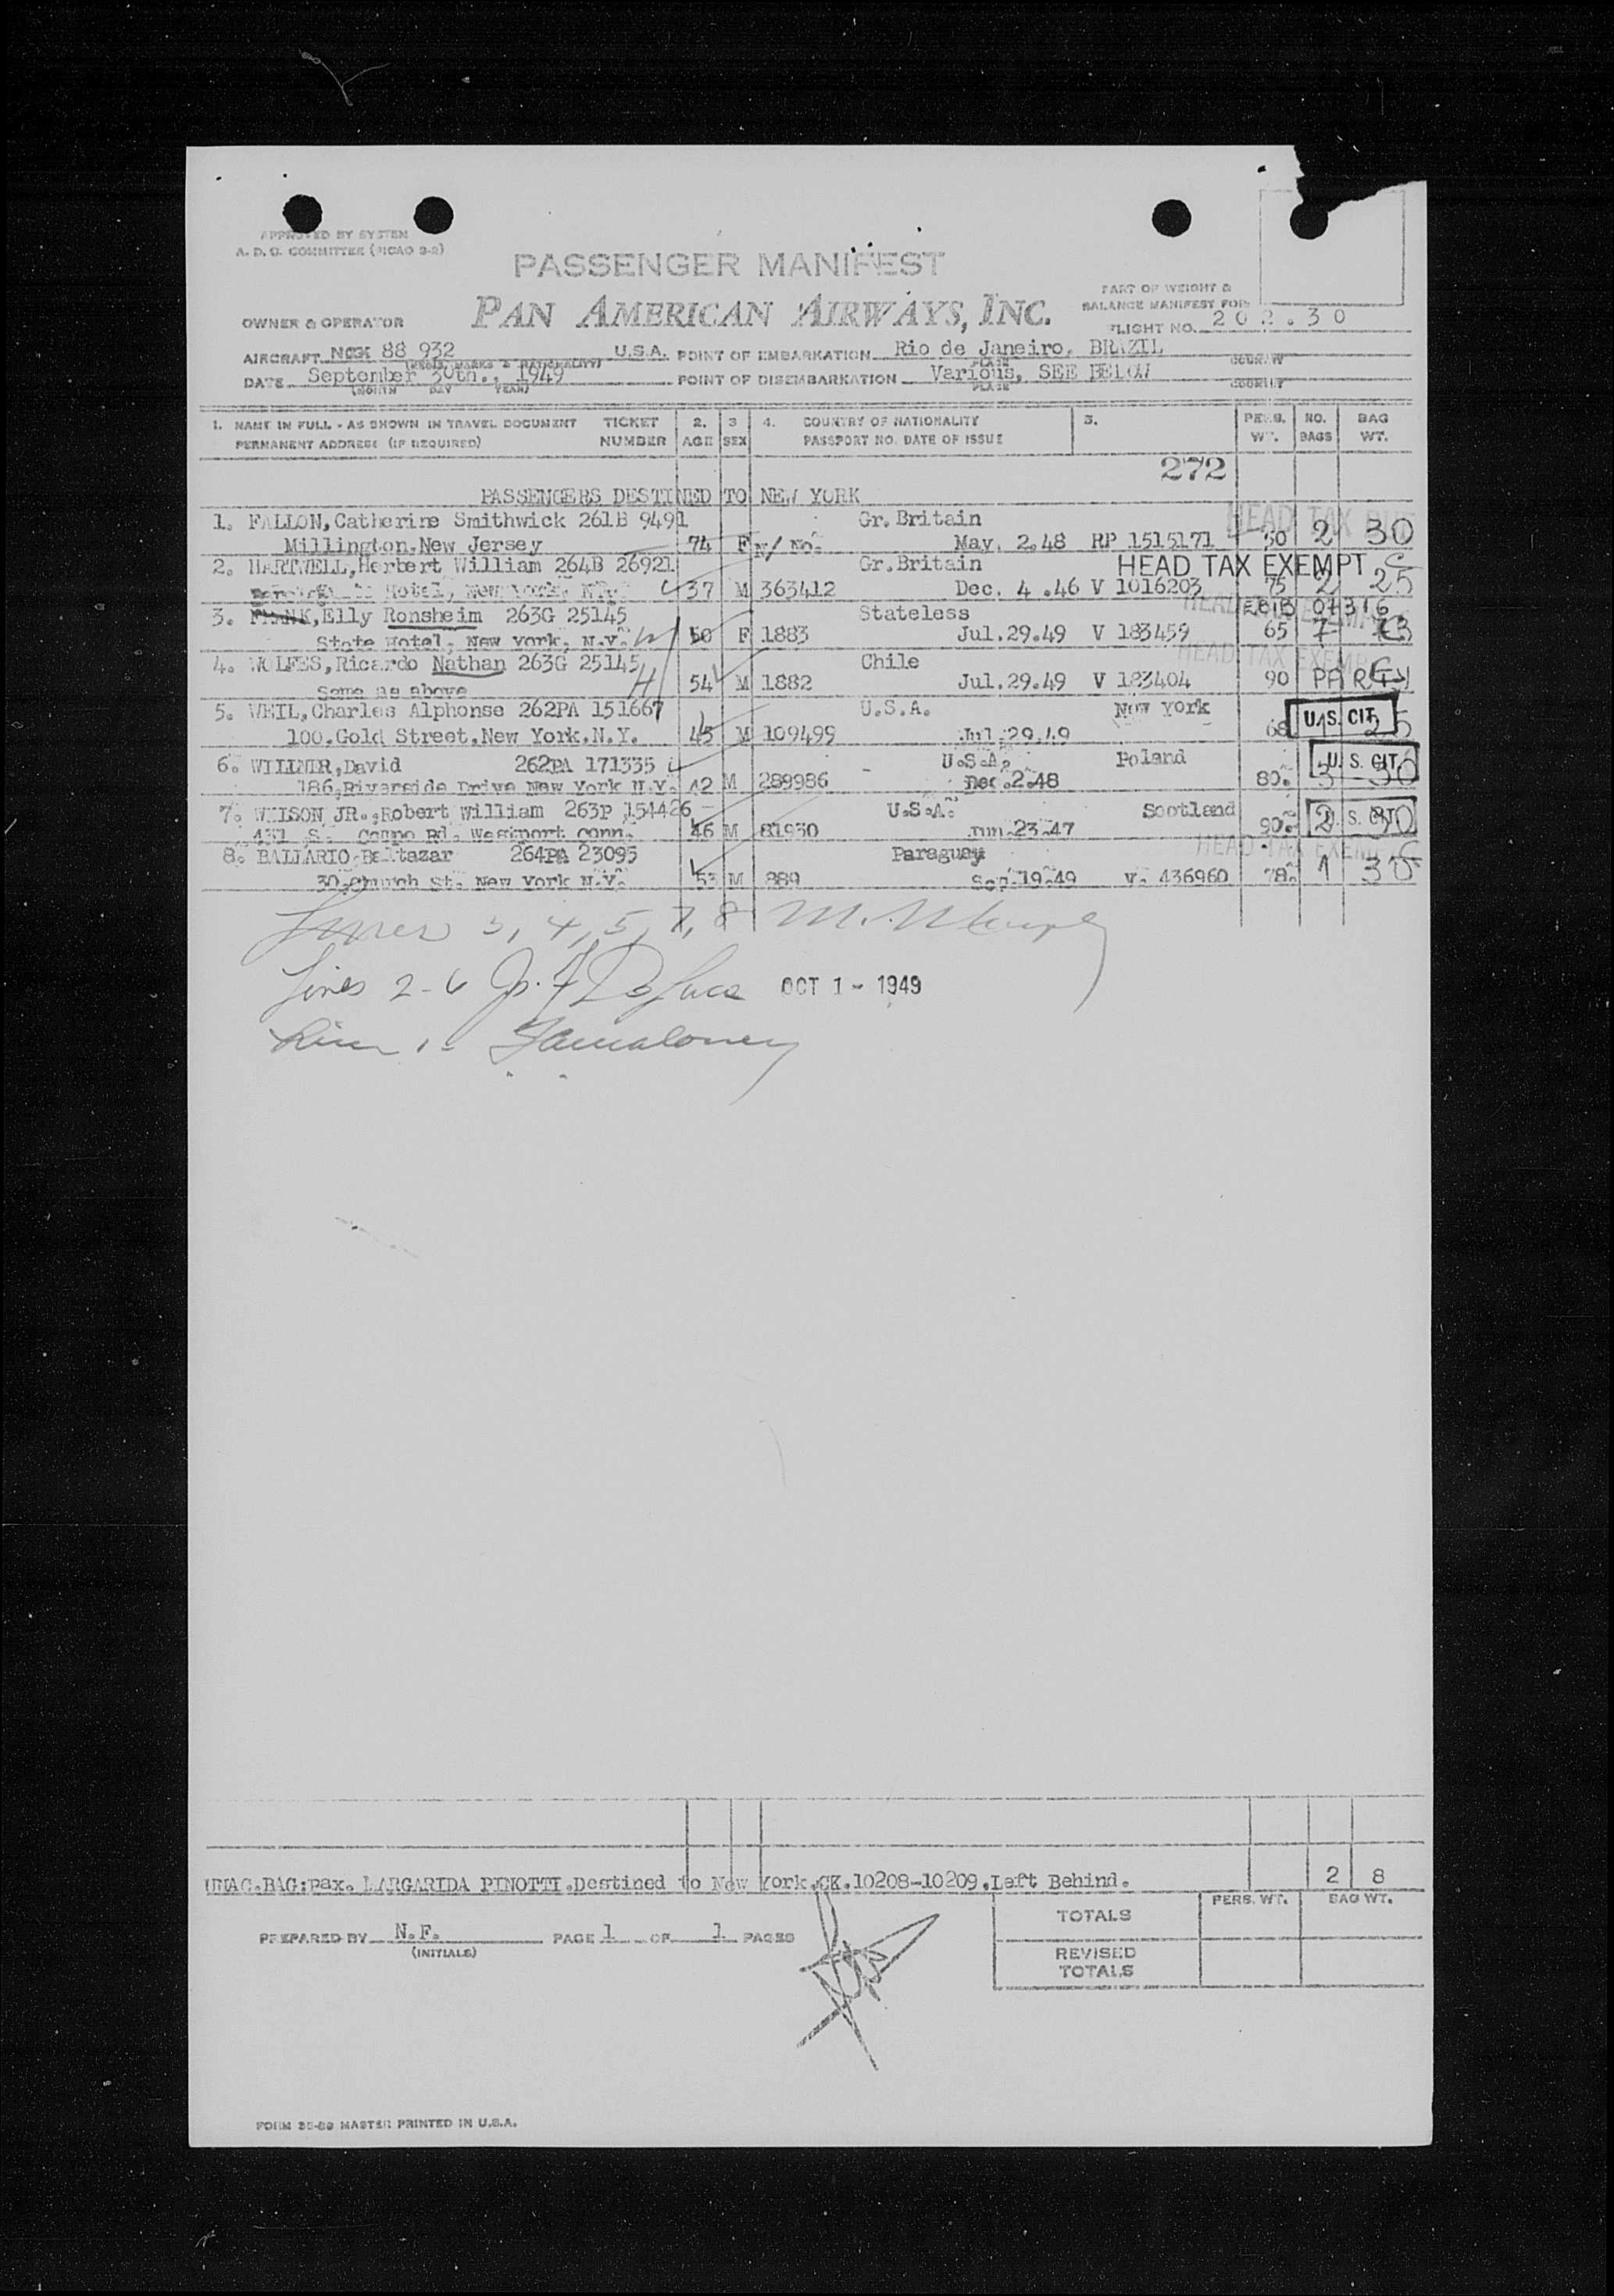 APPROVED BY SYSTEM
A. D. C. COMMITTEE (PICAO 3-2)
PASSENGER MANIFEST
PAN AMERICAN AIRWAYS, INC.
PART OF WEIGHT &
BALANCE MANIFEST FOR
FLIGHT NO. 202.30
OWNER & OPERATOR
AIRCRAFT 88 932 U.S.A. POINT OF EMBARKATION Rio de Janeiro, BRAZIL
(REGIS. MARKS & NATIONALITY) PLACE COUNTRY
DATE September 30th., 1949 POINT OF DISEMBARKATION Various, SEE BELOW
(MONTH DAY YEAR) PLACE COUNTRY
1. NAME IN FULL - AS SHOWN IN TRAVEL DOCUMENT TICKET 2. 3 4. COUNTRY OF NATIONALITY 5. PERS. NO. BAG
PERMANENT ADDRESS (IF REQUIRED) NUMBER AGE SEX PASSPORT NO. DATE OF ISSUE WT. BAGS WT.
272
PASSENGERS DESTINED TO NEW YORK
1. FALLON,Catherine Smithwick 261B 9491 Gr.Britain HEAD TAX
Millington.New Jersey 74 F N/ No. May. 2.48 RP 1515171 50 2 30
2. HARTWELL,Herbert William 264B 26921 Gr.Britain HEAD TAX EXEMPT
Hotel, New York, N.Y. 37 M 363412 Dec. 4 .46 V 1016203 75 2 25
3. FRANK,Elly Ronsheim 263G 25145 Stateless HEAD TAX EXEMPT
State Hotel, New York, N.Y. 50 F 1883 Jul.29.49 V 183459 65 7
4. WOLFES,Ricardo Nathan 263G 25145 Chile HEAD TAX EXEMPT
Same as above 54 M 1882 Jul.29.49 V 183404 90 PARTY
5. WEIL,Charles Alphonse 262PA 151667 U.S.A. New York U.S. CIT.
100.Gold Street.New York.N.Y. 45 M 109499 Jul.29.49 68 1 25
6. WILLNER,David 262PA 171335 U.S.A. Poland U. S. CIT.
186,Riverside Drive New York N.Y. 42 M 289986 Dec.2.48 80. 3 30
7. WILSON JR.,Robert William 263P 154426 U.S.A. Scotland
431 S. Compo Rd. Westport conn. 46 M 81930 Jun.23.47 90. 2 U. S. CIT 30
8. BALLARIO,Baltazar 264PA 23095 Paraguay HEAD TAX EXEMPT
30.Church St. New York N.Y. 53 M 889 Sep.19.49 V. 436960 78. 1 30
Lines 3, 4, 5, 7, 8
Lines 2-6 OCT 1 - 1949
Line 1-
UNAC.BAG:pax. MARGARIDA PINOTTI.Destined to New York.CK.10208-10209.Left Behind. 2 8
PERS. WT. BAG WT.
TOTALS
PREPARED BY N.F. PAGE 1 OF 1 PAGES
(INITIALS)
REVISED
TOTALS
FORM 35-89 MASTER PRINTED IN U.S.A.